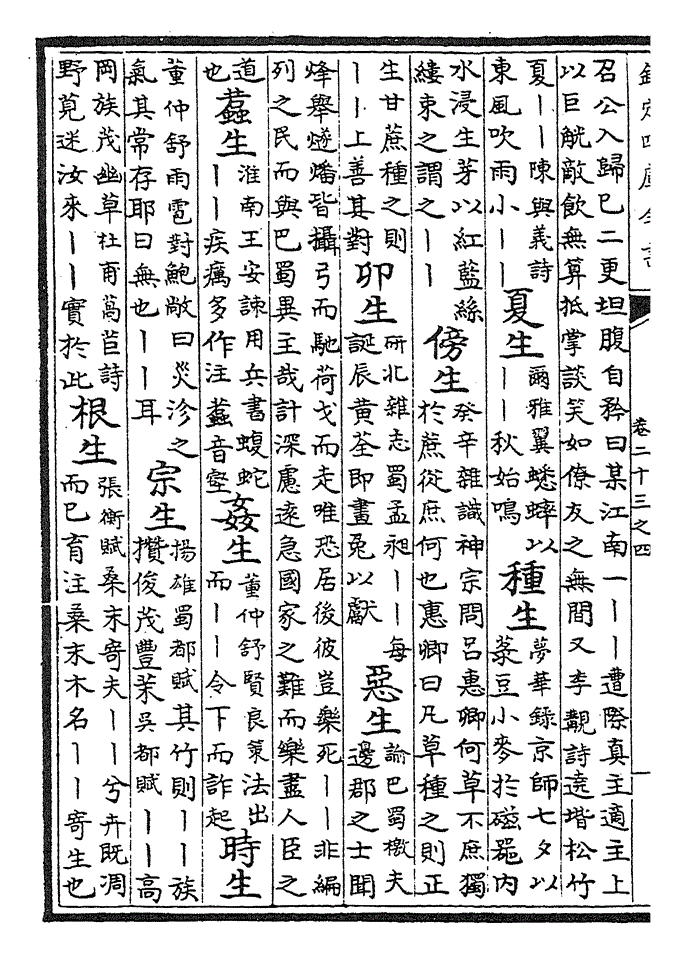 欽定四庫全書
卷二十三之四
一
召公入歸已二更坦腹自矜曰某江南一丨丨遭際真主適主上
以巨觥敵飲無算抵掌談笑如僚友之無間又李覯詩遶堦松竹
夏丨丨陳與義詩
東風吹雨小丨丨
夏生
爾雅翼蟋蟀以
丨丨秋始鳴
種生
夢華錄京師七夕以
菉豆小麥於磁器内
水浸生芽以紅藍絲
縷束之謂之丨丨
傍生
癸辛雜識神宗問吕惠卿何草不庶獨
於蔗從庶何也惠卿曰凡草種之則正
生甘蔗種之則
丨丨上善其對
卯生
研北雜志蜀孟昶丨丨每
誕辰黄荃即畫兔以獻
惡生
諭巴蜀檄夫
邊郡之士聞
烽舉燧燔皆攝弓而馳荷戈而走唯恐居後彼豈樂死丨丨非編
列之民而與巴蜀異主哉計深慮遠急國家之難而樂盡人臣之
道
也
蠚生
淮南王安諫用兵書蝮蛇
丨丨疾癘多作注蠚音壑
姦生
董仲舒賢良策法出
而丨丨令下而詐起
時生
董仲舒雨雹對鮑敞曰災沴之
氣其常存耶曰無也丨丨耳
宗生
揚雄蜀都賦其竹則丨丨族
攢俊茂豐茉吳都賦丨丨高
岡族茂幽草杜甫萵苣詩
野莧迷汝來丨丨實於此
根生
張衡賦桑末寄夫丨丨兮卉既凋
而已育注桑末木名丨丨寄生也